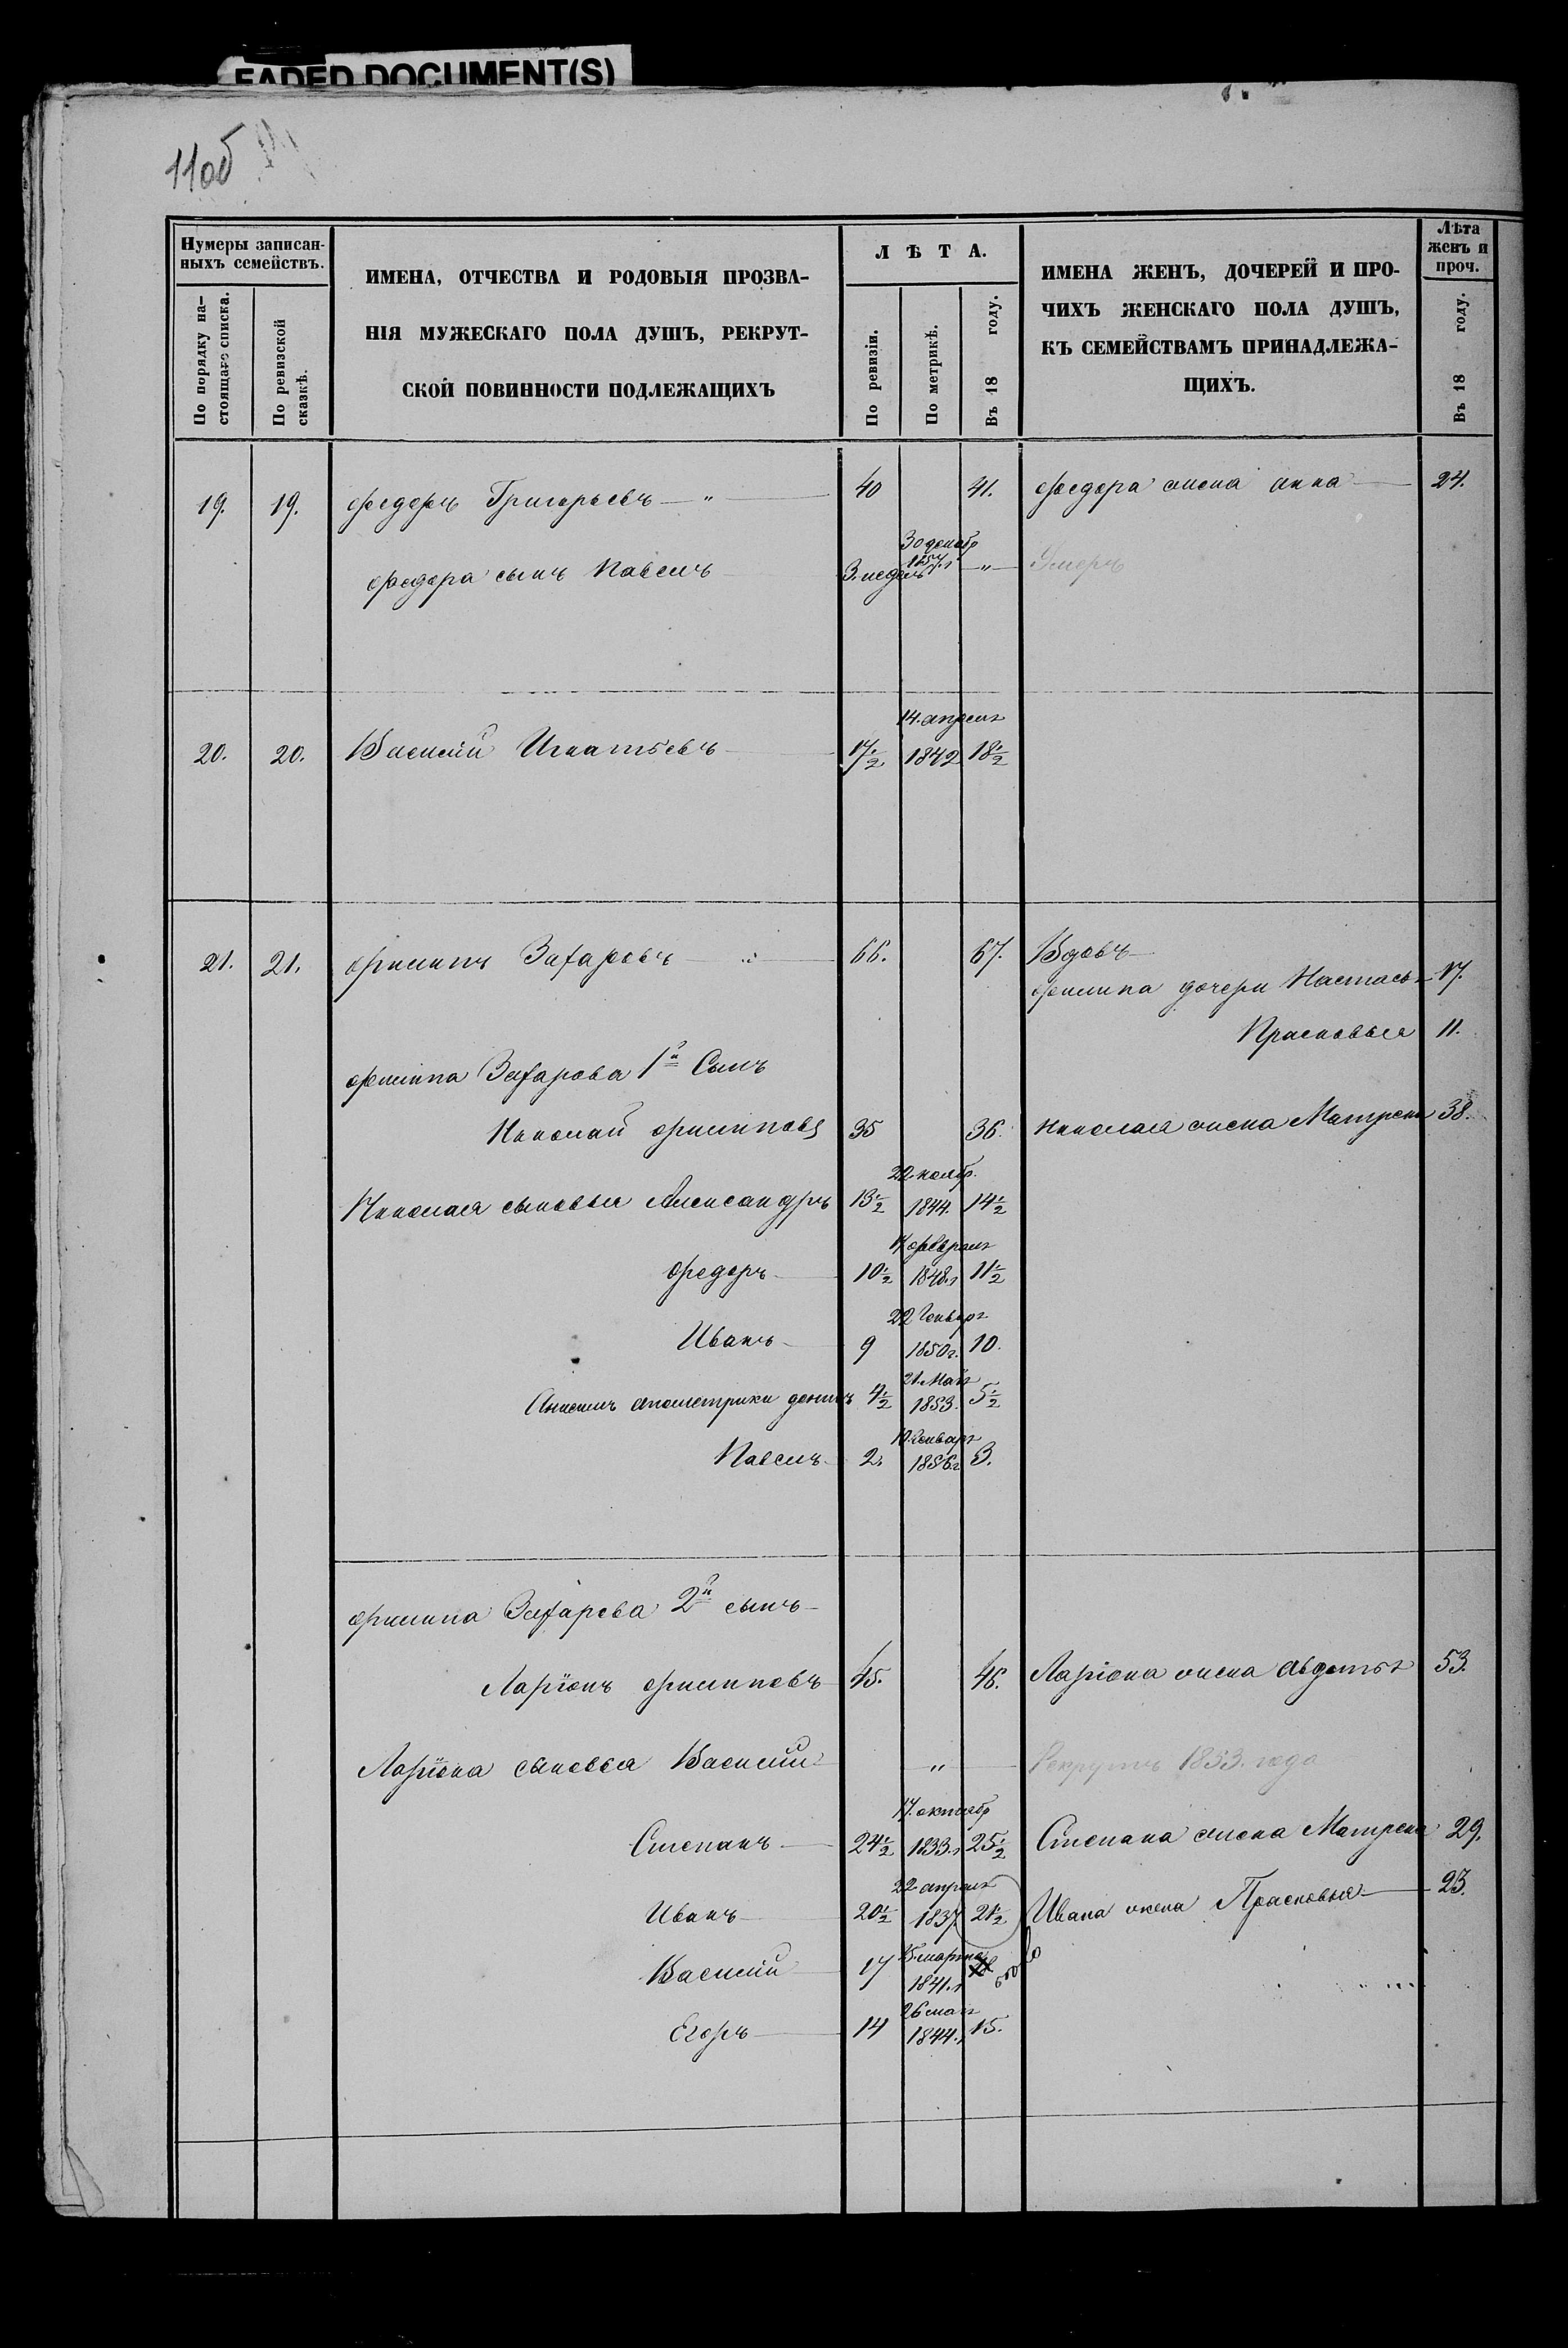 FADED DOCUMENT(S)
11об
Нумеры записан-
ныхъ семействъ.
По порядку на-
стоящаго списка.
По ревизской
сказкѣ.
ИМЕНА, ОТЧЕСТВА И РОДОВЫЯ ПРОЗВА-
НІЯ МУЖЕСКАГО ПОЛА ДУШЪ, РЕКРУТ-
СКОЙ ПОВИННОСТИ ПОДЛЕЖАЩИХЪ
ЛѢТА.
По ревизіи.
По метрикѣ.
Въ 18 году.
ИМЕНА ЖЕНЪ, ДОЧЕРЕЙ И ПРО-
ЧИХЪ ЖЕНСКАГО ПОЛА ДУШЪ,
КЪ СЕМЕЙСТВАМЪ ПРИНАДЛЕЖА-
ЩИХЪ.
Лѣта
женъ и
проч.
Въ 18 году.
19. 19. Федоръ Григорьевъ — " — 40 41. Федора жена Анна — 24.
30 декабр
Федора сынъ Павелъ 3. недель 1857 г — " — Умеръ
14. апреля
20. 20. Василий Игнатьевъ — 17 1/2 1842 18 1/2
21. 21. Филипъ Захаровъ — 66. 67. Вдовъ —
Филипа дочери Настасья 17.
Прасковья 11.
Филипа Захарова 1й Сынъ
Николай Филиповъ 35 36. Николая жена Матрена 38.
22 ноябр.
Николая сыновья Александръ 13 1/2 1844. 14 1/2
17 февраля
Федоръ 10 1/2 1848. г 11 1/2
22 Генваря
Иванъ 9 1850 г. 10.
21. Мая
Анисимъ 4 1/2 1853. 5 1/2
10. Генваря
Павелъ 2. 1856. г 3.
Филипа Захарова 2й сынъ —
Ларіонъ Филиповъ 45. 46. Ларіона жена Авдотья 53.
Ларіона сыновья Василий — " — Рекрутъ 1853. года
17. октябр
Степанъ — 24 1/2 1833. г 25 1/2 Степана жена Матрена 29.
22 апреля
Иванъ — 20 1/2 1837 21 1/2 Ивана жена Прасковья — 23.
15. марта
Василий 17 1841. г
26 мая
Егоръ — 14 1844. г 15.